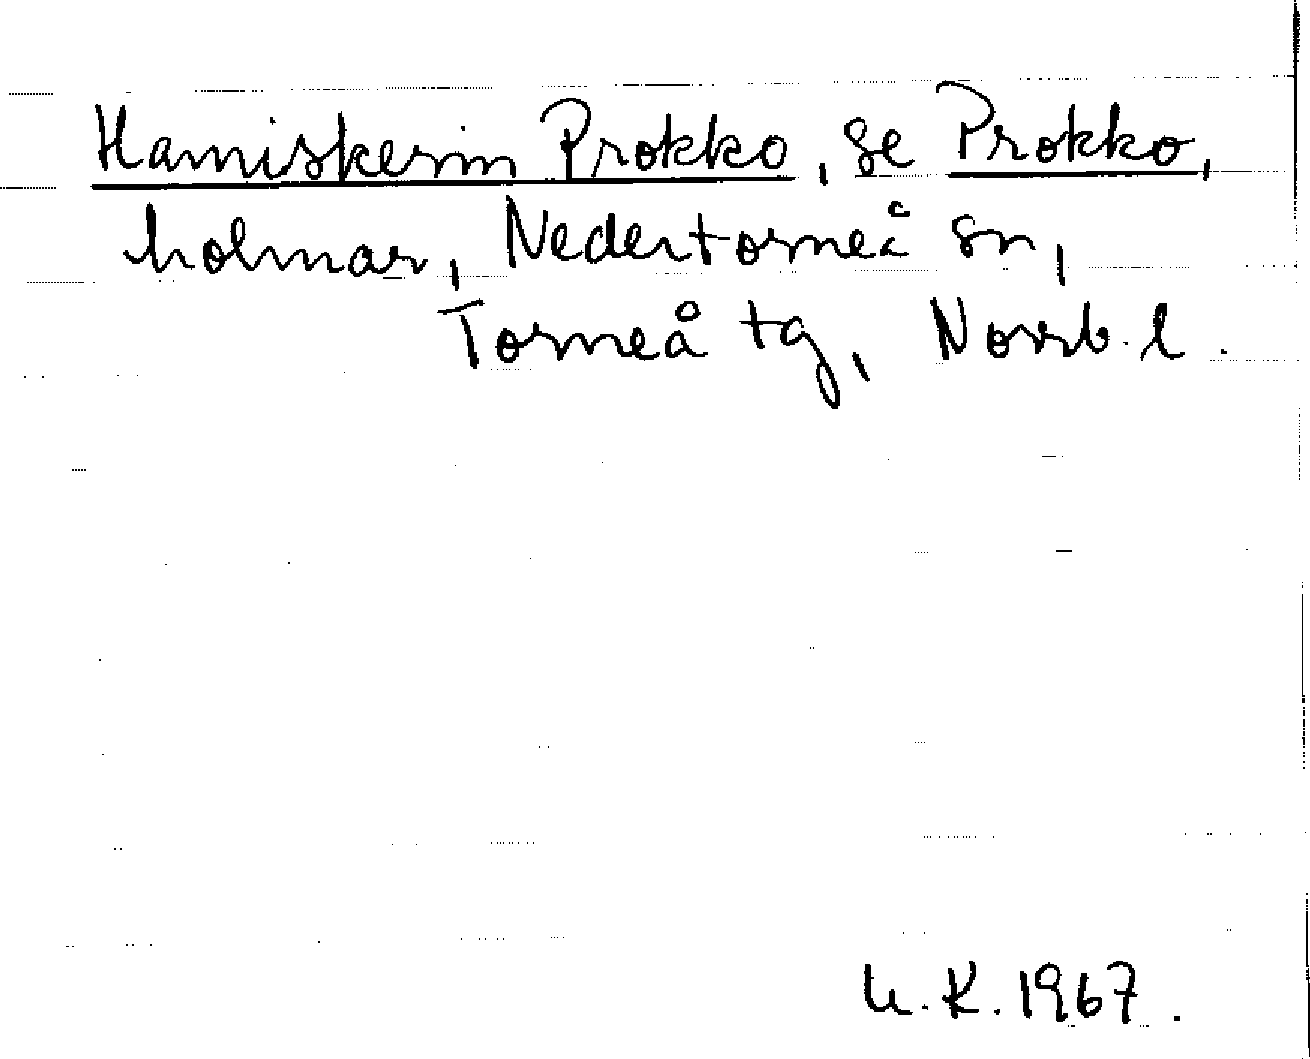 Hamiskerin Prokko, se Prokko,
holmar, Nedertorneå sn,
Torneå tg, Norrb. l.
U.K. 1967.